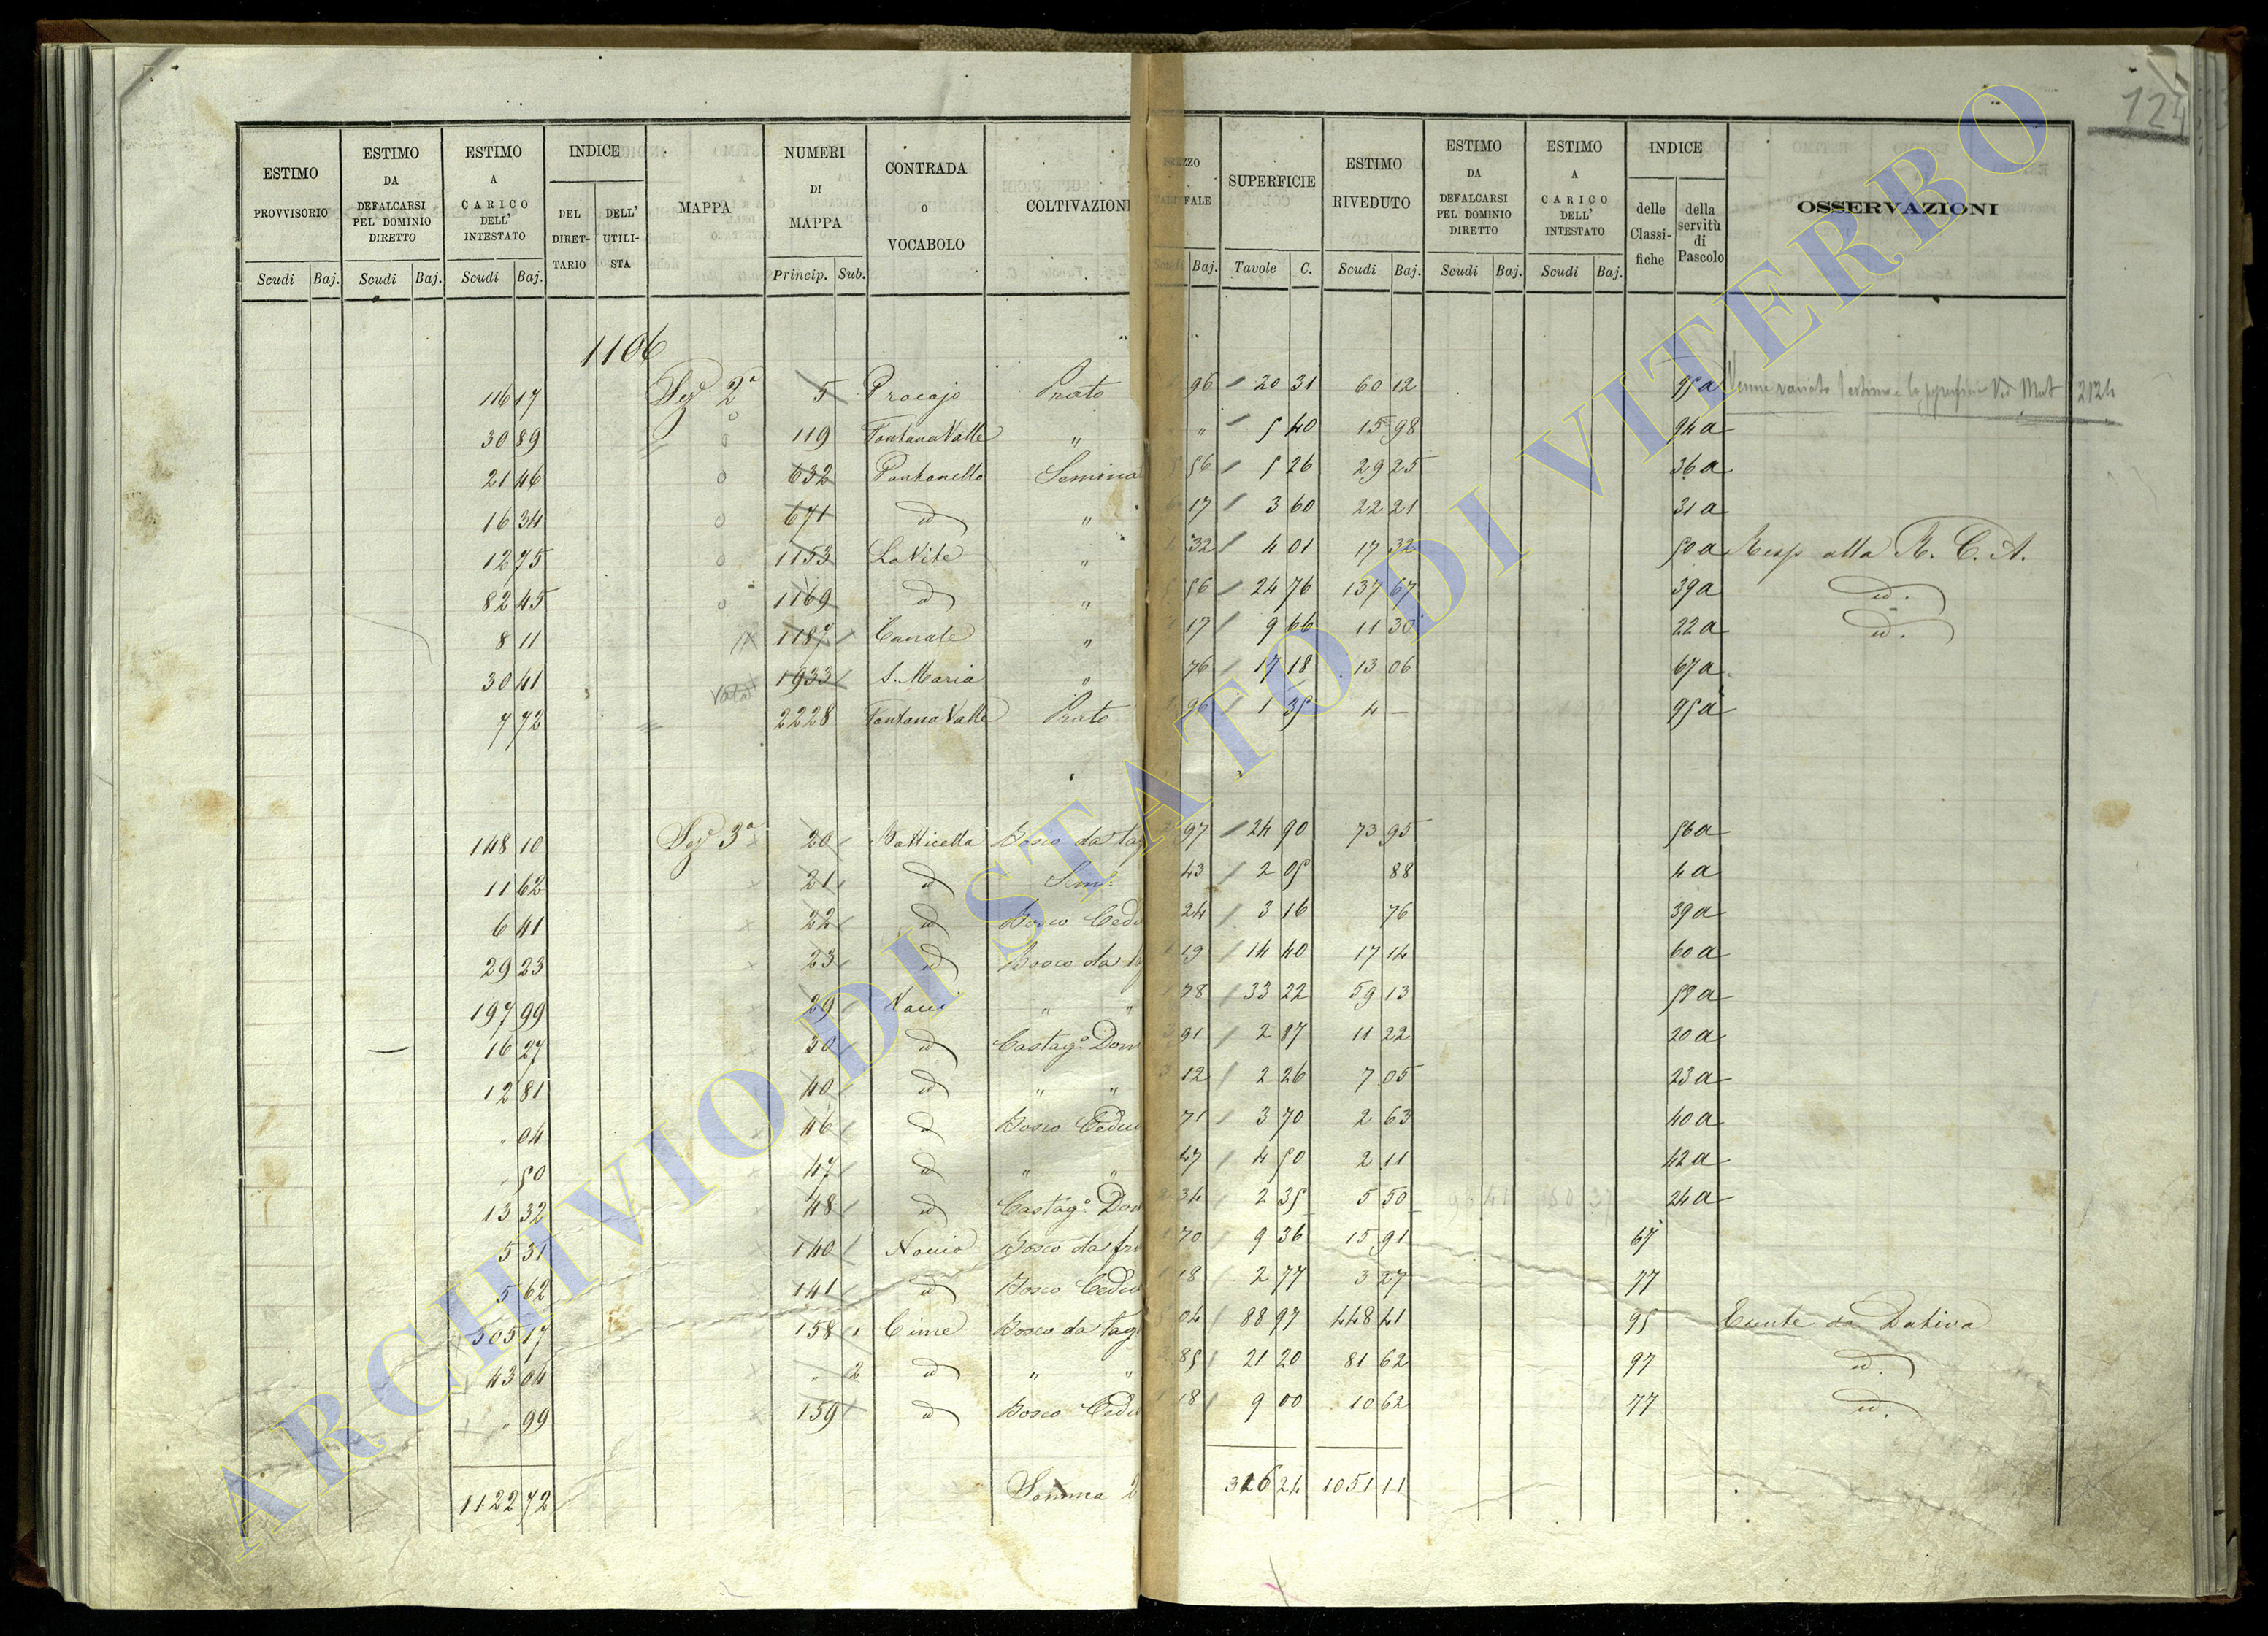 124
ESTIMO PROVVISORIO Scudi Baj.
ESTIMO DA DEFALCARSI PEL DOMINIO DIRETTO Scudi Baj.
ESTIMO A CARICO DELL' INTESTATO Scudi Baj.
INDICE DEL DIRETTARIO DELL' UTILISTA
MAPPA
NUMERI DI MAPPA Princip. Sub.
CONTRADA O VOCABOLO
COLTIVAZION
SUPERFICIE Tavole C.
ESTIMO RIVEDUTO Scudi Baj.
ESTIMO DA DEFALCARSI PEL DOMINIO DIRETTO Scudi Baj.
ESTIMO A CARICO DELL' INTESTATO Scudi Baj.
INDICE delle Classifiche della servitù di Pascolo
OSSERVAZIONI
1106
116 17 Sez. 2a 5 Procojo Prato 96 20 31 60 12 95a Mut 2124
30 89 119 Fontana Valle " " 5 40 15 98 94a
21 46 632 Pantanello Semina 56 5 26 29 25 36a
16 34 671 id " 17 3 60 22 21 31a
12 75 1153 La Vite " 32 4 01 17 32 50a Resp. alla R. C. A.
82 45 1169 id " 56 24 76 137 67 39a id.
8 11 1187 Canale " 17 9 66 11 30 22a id.
30 41 1933 S. Maria " 76 17 18 13 06 67a
7 72 2228 Fontana Valle Prato 96 1 35 4 — 95a
148 10 Sez. 3a 20 Botticella Bosco da tag 97 24 90 73 95 56a
11 62 21 id Sem.o 43 2 05 88 4a
6 41 22 id Bosco Cedu 24 3 16 76 39a
29 23 23 id Bosco da 19 14 40 17 14 60a
197 99 29 " " 78 33 22 59 13 58a
16 27 30 id Castag.o Dom 91 2 87 11 22 20a
12 81 40 id " " 12 2 26 7 05 23a
" 04 46 id Bosco Cedu 71 3 70 2 63 40a
" 50 47 id " " 47 4 50 2 11 42a
13 32 48 id Castag.o Dom 34 2 35 5 50 24a
5 31 140 Nouio Bosco da fru 70 9 36 15 91 67
5 62 141 id Bosco Cedu 18 2 77 3 27 77
305 17 158 1 Cime Bosco da tag 04 88 97 448 41 95 Esente da Dativa
43 04 " 2 id " " 85 21 20 81 62 97 id.
" 99 159 id Bosco Cedu 18 9 00 10 62 77 id.
1122 72 Somma 316 24 1051 11
ARCHIVIO DI STATO DI VITERBO